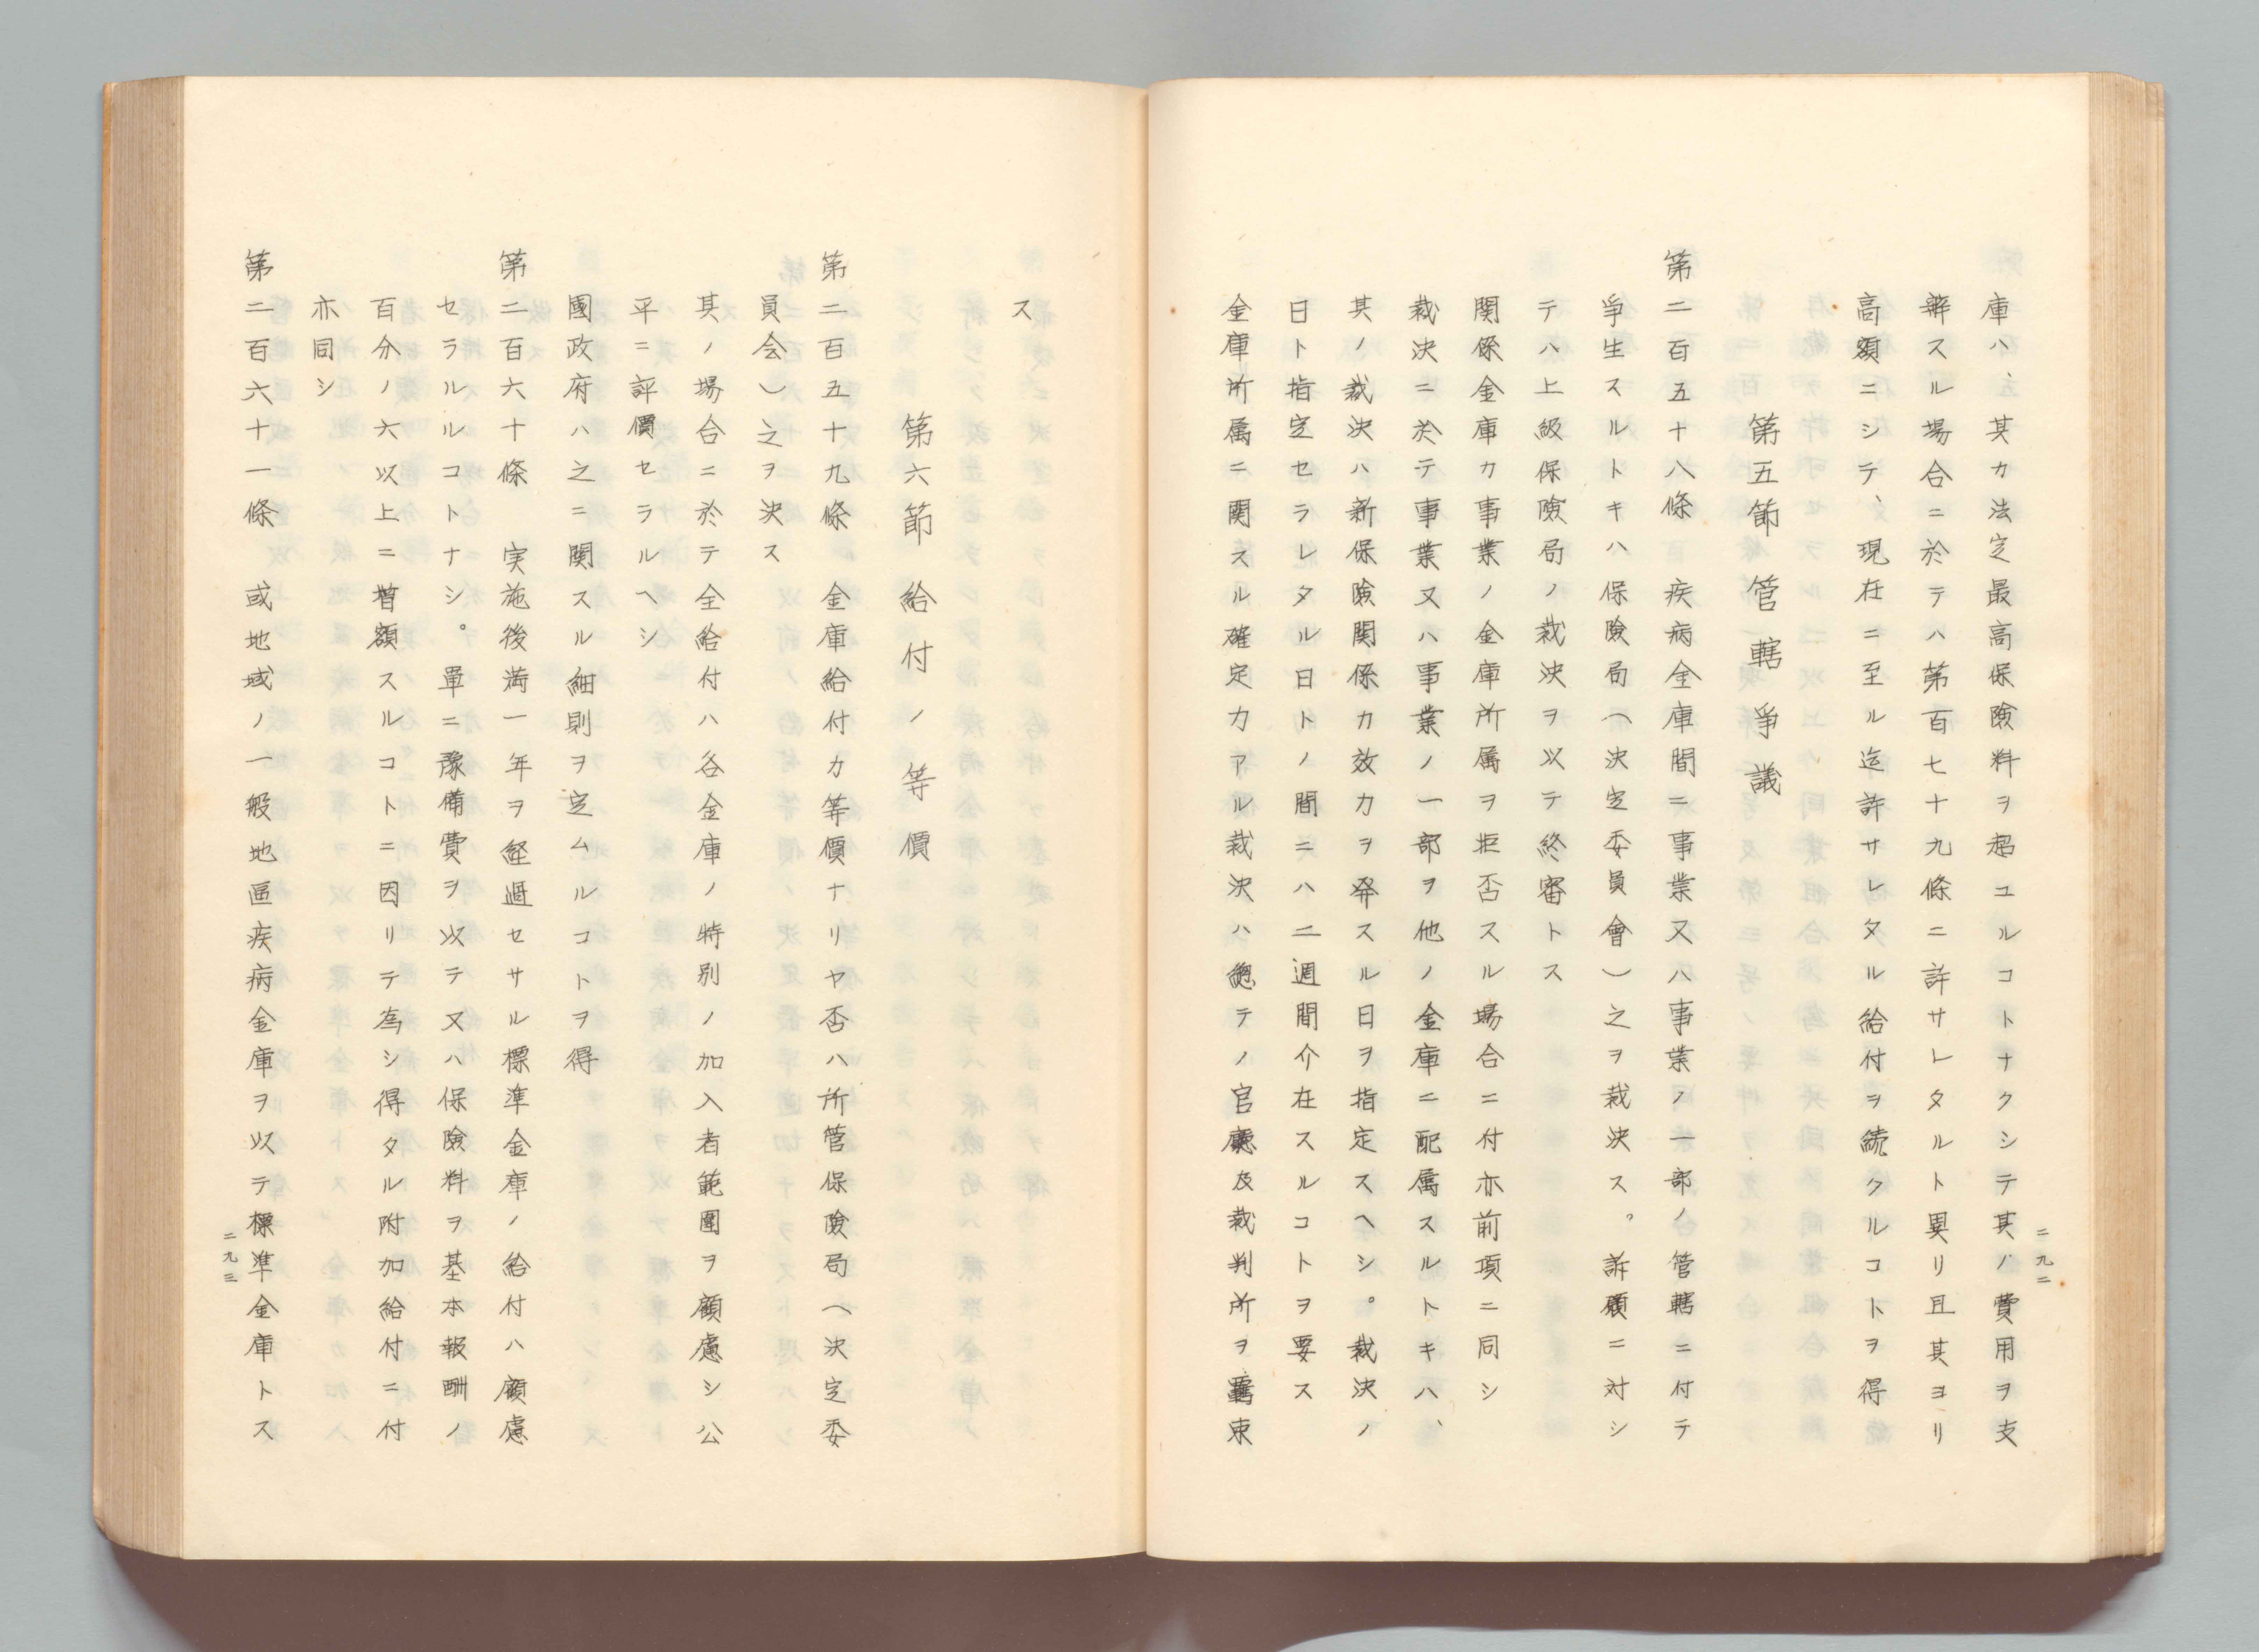 庫ハ、其カ法定最高保険料ヲ超ユルコトナクシテ其ノ費用ヲ支
辨スル場合ニ於テハ第百七十九條ニ許サレタルト異リ且其ヨリ
高額ニシテ、現在ニ至ル迄許サレタル給付ヲ続クルコトヲ得
第五節 管轄爭議
第二百五十八條 疾病金庫間ニ事業又ハ事業ノ一部ノ管轄ニ付テ
爭生スルトキハ保険局(決定委員會)之ヲ裁決ス。訴願ニ対シ
テハ上級保険局ノ裁決ヲ以テ終審トス
関係金庫カ事業ノ金庫所属ヲ拒否スル場合ニ付亦前項ニ同シ
裁決ニ於テ事業又ハ事業ノ一部ヲ他ノ金庫ニ配属スルトキハ、
其ノ裁決ハ新保険関係カ效力ヲ発スル日ヲ指定スヘシ。裁決ノ
日ト指定セラレタル日トノ間ニハ二週間介在スルコトヲ要ス
金庫所属ニ関スル確定力アル裁決ハ總テノ官廳及裁判所ヲ羈束
二九二
ス
第六節 給付ノ等價
第二百五十九條 金庫給付カ等價ナリヤ否ハ所管保険局(決定委
員会)之ヲ決ス
其ノ場合ニ於テ全給付ハ各金庫ノ特別ノ加入者範圍ヲ顧慮シ公
平ニ評價セラルヘシ
國政府ハ之ニ関スル細則ヲ定ムルコトヲ得
第二百六十條 実施後満一年ヲ経過セサル標準金庫ノ給付ハ顧慮
セラルルコトナシ。單ニ豫備費ヲ以テ又ハ保険料ヲ基本報酬ノ
百分ノ六以上ニ増額スルコトニ因リテ為シ得タル附加給付ニ付
亦同シ
第二百六十一條 或地域ノ一般地區疾病金庫ヲ以テ標準金庫トス
二九三